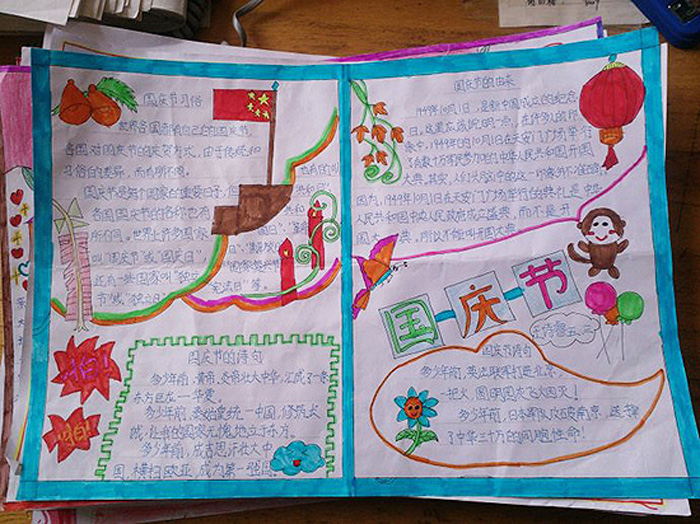 国庆节习俗
世界各国都有自己的国庆节,
各国对国庆节的庆贺方式,由于传统和
习俗的差异,而有所不同。
国庆节是每个国家的重要日子,但
各国国庆节的名称也有
所不同。世界上许多国家
叫“国庆节”或“国庆日”,
还有一些国家叫“独立
节”或“独立日”
也有的叫
共和日
共和
日”、
“国家
宪法日”等。
国庆节的诗句
多少年前,黄帝、炎帝壮大中华,汇成了一条
东方巨龙——华夏。
多少年前,秦始皇统一中国,修筑长
城,让我的国家无愧地立于东方。
多少年前,成吉思汗壮大中
国,横扫欧亚,成为第一强国。
国庆节的由来
1949年10月1日,是新中国成立的纪念
日。这里应该说明一点,在许多人的印
象中,1949年的10月1日在天安门广场举行
了有数十万军民参加的中华人民共和国开国
大典。其实,人们头脑中的这一印象并不准确。
因为,1949年10月1日在天安门广场举行的典礼是中华
人民共和国中央人民政府成立盛典,而不是开
国大典。所以不能叫开国大典。
国庆节
国庆节诗句
多少年前,英法联军打进北京,
一把火,圆明园灰飞火灭!
多少年前,日本军队攻占南京,
了中华三十万的同胞性命!